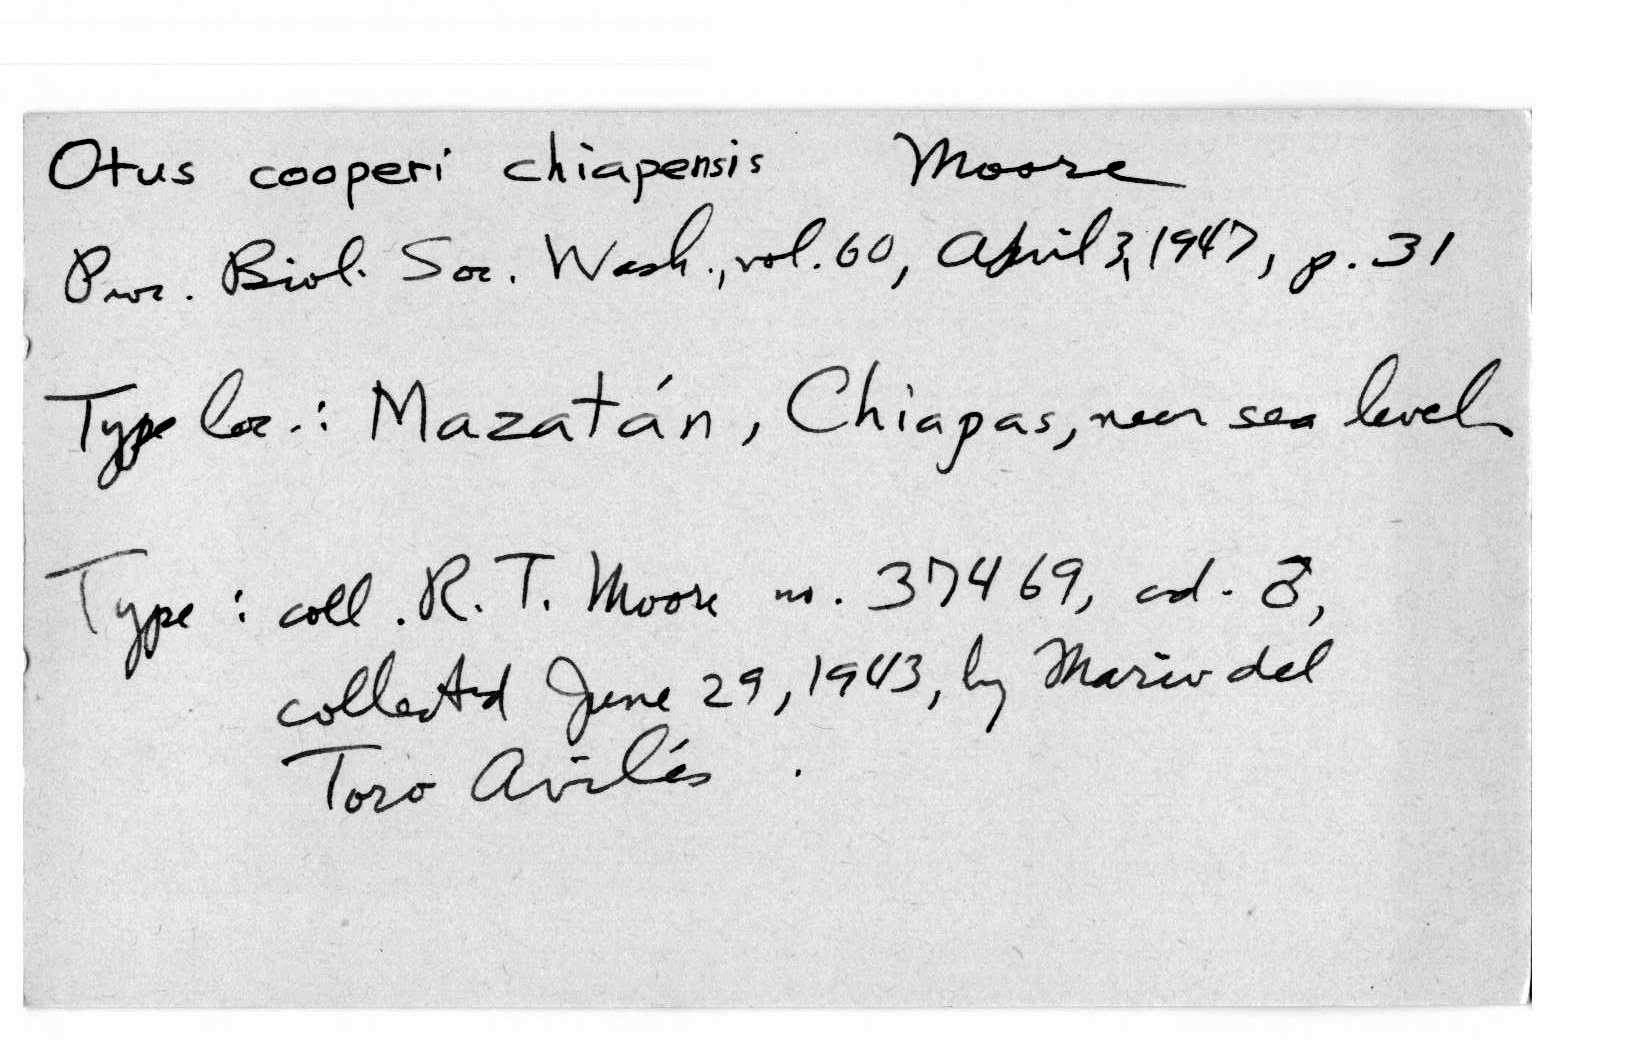 Otus cooperi chiapensis Moore
Proc. Biol. Soc. Wash., vol. 60, April 3, 1947, p. 31
Type loc.: Mazatán, Chiapas, near sea level.
Type: coll. R. T. Moore no. 37469, ad. ♂,
collected June 29, 1943, by Mario del
Toro Avilés.